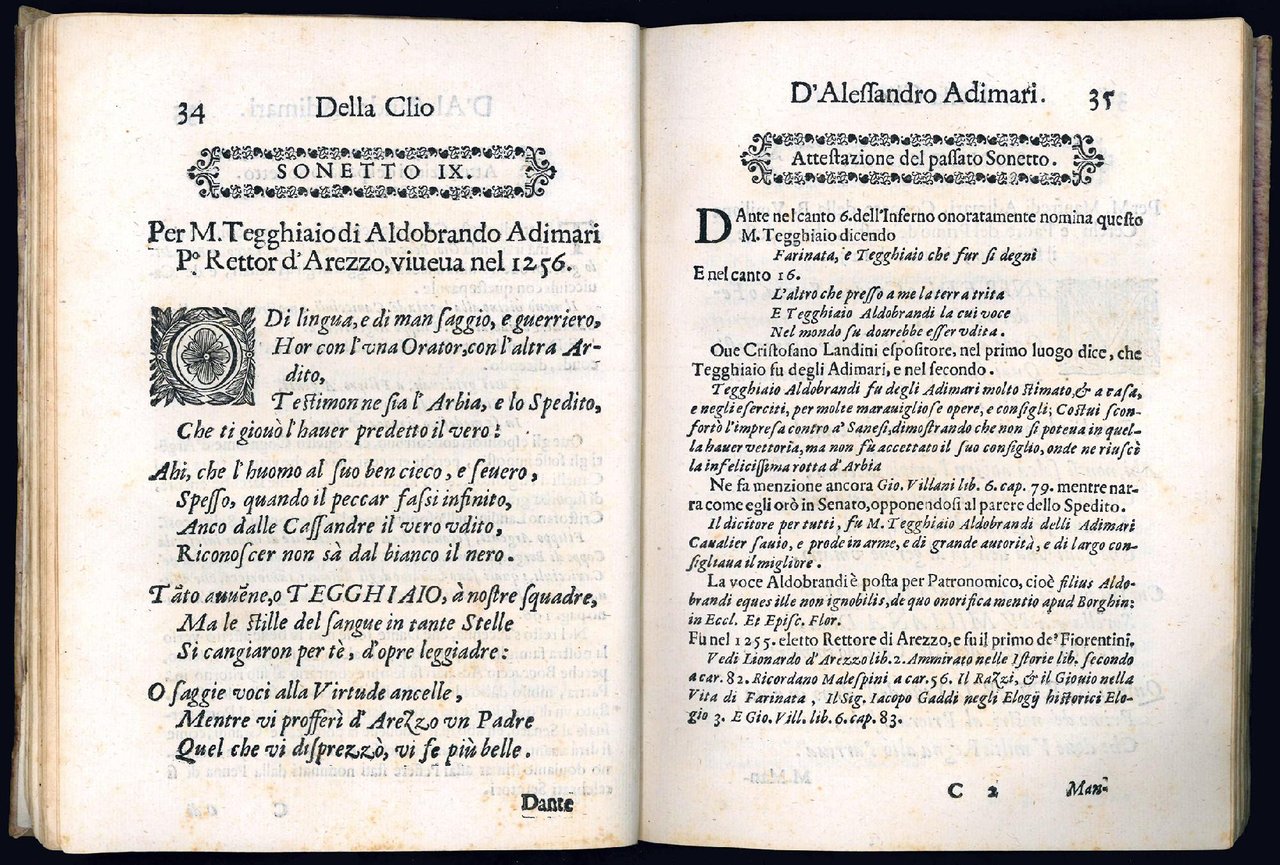 34 Della Clio
SONETTO IX.
Per M. Tegghiaio di Aldobrando Adimari
P.º Rettor d'Arezzo, viueua nel 1256.
O Di lingua, e di man saggio, e guerriero,
Hor con l'vna Orator, con l'altra Ar-
dito,
Testimon ne sia l'Arbia, e lo Spedito,
Che ti giouò l'hauer predetto il vero?
Ahi, che l'huomo al suo ben cieco, e seuero,
Spesso, quando il peccar fassi infinito,
Anco dalle Cassandre il vero vdito,
Riconoscer non sà dal bianco il nero.
Tãto auuẽne, o TEGGHIAIO, à nostre squadre,
Ma le stille del sangue in tante Stelle
Si cangiaron per tè, d'opre leggiadre:
O saggie voci alla Virtude ancelle,
Mentre vi profferì d'Arezzo vn Padre
Quel che vi disprezzò, vi fe più belle.
Dante
D'Alessandro Adimari. 35
Attestazione del passato Sonetto.
DAnte nel canto 6. dell'Inferno onoratamente nomina questo
M. Tegghiaio dicendo
Farinata, e Tegghiaio che fur sì degni
E nel canto 16.
L'altro che presso a me la terra trita
E Tegghiaio Aldobrandi la cui voce
Nel mondo su dourebbe esser vdita.
Oue Cristofano Landini espositore, nel primo luogo dice, che
Tegghiaio fu degli Adimari, e nel secondo.
Tegghiaio Aldobrandi fu degli Adimari molto stimato, & a casa,
e negli eserciti, per molte marauigliose opere, e consigli; Costui scon-
fortò l'impresa contro a' Sanesi, dimostrando che non si poteua in quel-
la hauer vettoria, ma non fù accettato il suo consiglio, onde ne riuscì
la infelicissima rotta d'Arbia
Ne fa menzione ancora Gio. Villani lib. 6. cap. 79. mentre nar-
ra come egli orò in Senato, opponendosi al parere dello Spedito.
Il dicitore per tutti, fu M. Tegghiaio Aldobrandi delli Adimari
Caualier sauio, e prode in arme, e di grande autorità, e di largo con-
sigliaua il migliore.
La voce Aldobrandi è posta per Patronomico, cioè filius Aldo-
brandi eques ille non ignobilis, de quo onorifica mentio apud Borghin:
in Eccl. Et Episc. Flor.
Fu nel 1255. eletto Rettore di Arezzo, e fu il primo de' Fiorentini.
Vedi Lionardo d'Arezzo lib. 2. Ammirato nelle Istorie lib. secondo
a car. 82. Ricordano Malespini a car. 56. Il Razzi, & il Giouio nella
Vita di Farinata, Il Sig. Iacopo Gaddi negli Elogÿ historici Elo-
gio 3. E Gio. Vill. lib. 6. cap. 83.
C 2 Man-